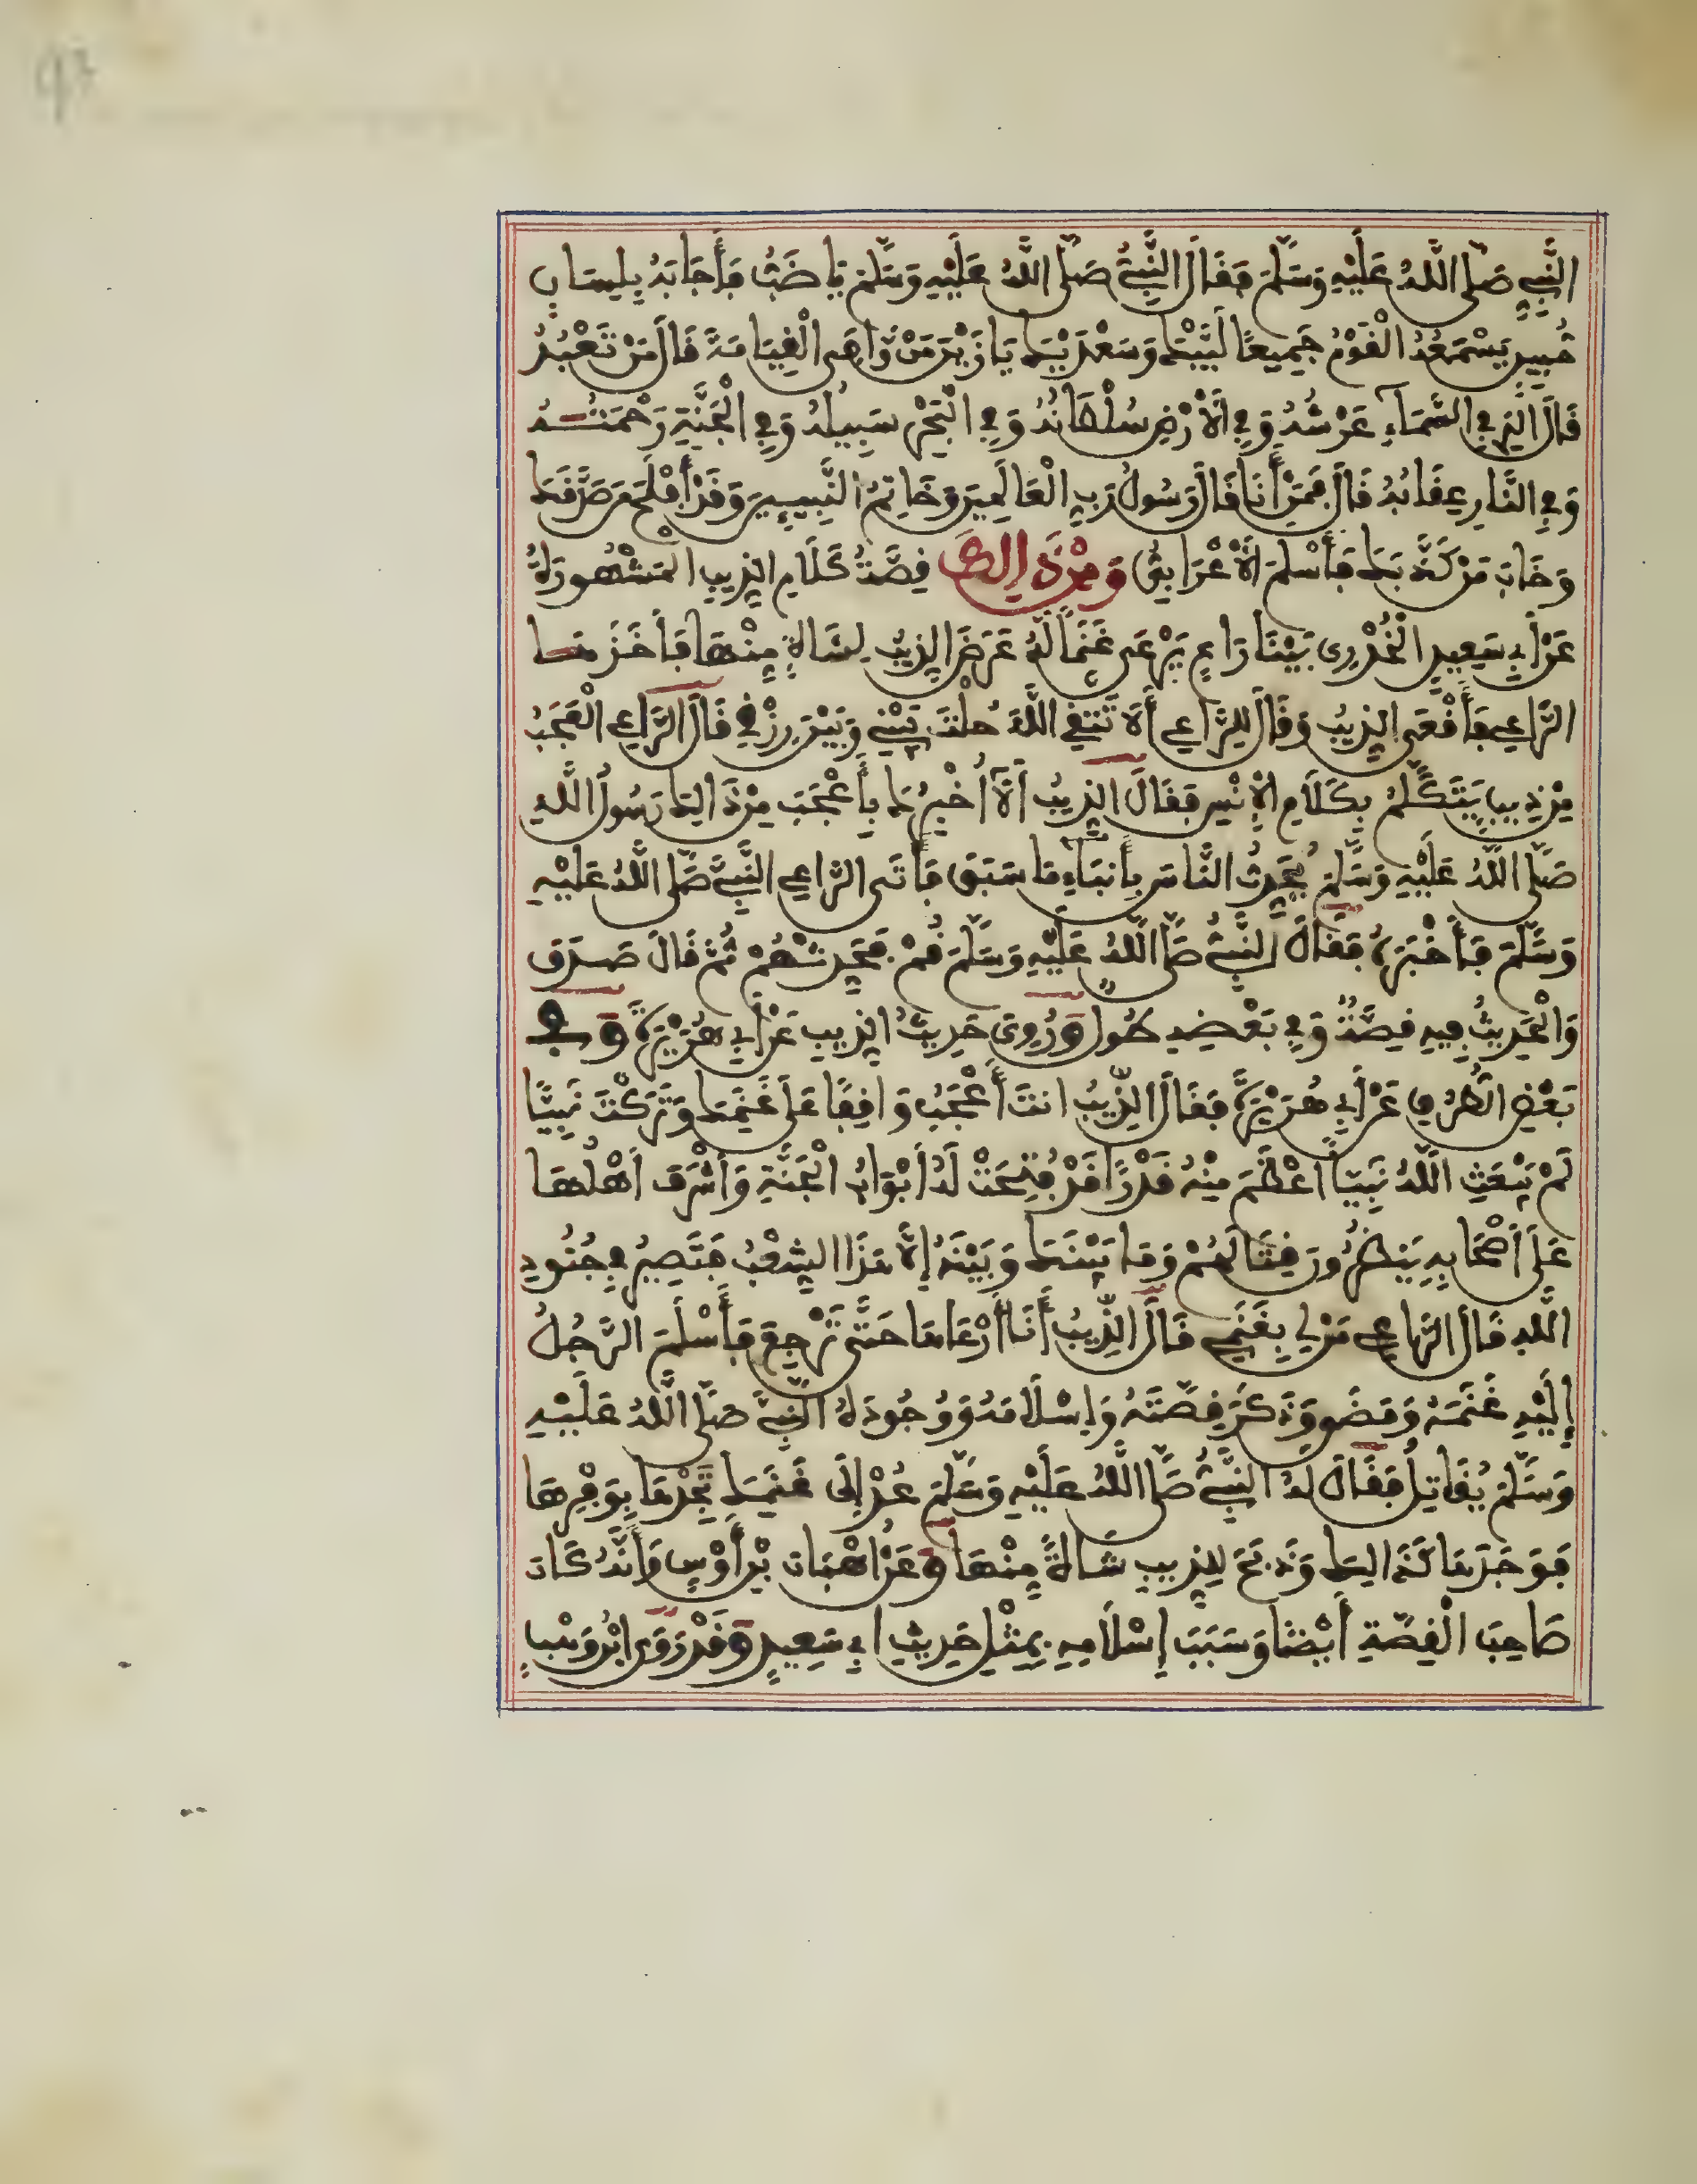 النَّبِيِّ صَلَّى اللَّهُ عَلَيْهِ وَسَلَّمَ فَقَالَ النَّبِيُّ صَلَّى اللَّهُ عَلَيْهِ وَسَلَّمَ يَا ضَبُّ فَأَجَابَهُ بِلِسَانٍ
مُبِينٍ يَسْمَعُهُ الْقَوْمُ جَمِيعًا لَبَّيْكَ وَسَعْدَيْكَ يَا زَيْنَ مَنْ وَافَى الْقِيَامَةَ قَالَ مَنْ تَعْبُدُ
قَالَ الَّذِي فِي السَّمَاءِ عَرْشُهُ وَفِي الْأَرْضِ سُلْطَانُهُ وَفِي الْبَحْرِ سَبِيلُهُ وَفِي الْجَنَّةِ رَحْمَتُهُ
وَفِي النَّارِ عِقَابُهُ قَالَ فَمَنْ أَنَا قَالَ رَسُولُ رَبِّ الْعَالَمِينَ وَخَاتِمُ النَّبِيِّينَ وَقَدْ أَفْلَحَ مَنْ صَدَّقَكَ
وَخَابَ مَنْ كَذَّبَكَ فَأَسْلَمَ الْأَعْرَابِيُّ وَمِنْ ذَالِكَ قِصَّةُ كَلَامِ الذِّيبِ الْمَشْهُورَةُ
عَنْ أَبِي سَعِيدٍ الْخُدْرِي بَيْنَا رَاعٍ يَرْعَى غَنَمًا لَهُ عَرَضَ الذِّيبُ لِشَاةٍ مِنْهَا فَأَخَذَهَا
الرَّاعِي فَأَقْعَى الذِّيبُ وَقَالَ لِلرَّاعِي أَلَا تَتَّقِي اللَّهَ حُلْتَ بَيْنِي وَبَيْنَ رِزْقِي قَالَ الرَّاعِي الْعَجَبُ
مِنْ ذِيبٍ يَتَكَلَّمُ بِكَلَامِ الْإِنْسِ فَقَالَ الذِّيبُ أَلَا أُخْبِرُكَ بِأَعْجَبَ مِنْ ذَالِكَ رَسُولُ اللَّهِ
صَلَّى اللَّهُ عَلَيْهِ وَسَلَّمَ يُحَدِّثُ النَّاسَ بِأَنْبَاءِ مَا سَبَقَ فَأَتَى الرَّاعِي النَّبِيَّ صَلَّى اللَّهُ عَلَيْهِ
وَسَلَّمَ فَأَخْبَرَهُ فَقَالَ النَّبِيُّ صَلَّى اللَّهُ عَلَيْهِ وَسَلَّمَ قُمْ فَحَدِّثْهُمْ ثُمَّ قَالَ صَدَقَ
وَالْحَدِيثُ فِيهِ قِصَّةٌ وَفِي بَعْضِهِ طُول وَرُوِيَ حَدِيثُ الذِّيبِ عَنْ أَبِي هُرَيْرَةَ وَفِي
بَعْضِ الطُّرُقِ عَنْ أَبِي هُرَيْرَةَ فَقَالَ الذِّيبُ أَنْتَ أَعْجَبُ وَاقِفًا عَلَى غَنَمِكَ وَتَرَكْتَ نَبِيًّا
لَمْ يَبْعَثِ اللَّهُ نَبِيًّا أَعْظَمَ مِنْهُ قَدْرًا قَدْ فُتِحَتْ لَهُ أَبْوَابُ الْجَنَّةِ وَأَشْرَفَ أَهْلُهَا
عَلَى أَصْحَابِهِ يَنْظُرُونَ قِتَالَهُمْ وَمَا بَيْنَكَ وَبَيْنَهُ إِلَّا هَذَا الشِّعْبُ فَتَصِيرُ فِي جُنُودِ
اللَّهِ قَالَ الرَّاعِي مَنْ لِي بِغَنَمِي قَالَ الذِّيبُ أَنَا أَرْعَاهَا حَتَّى تَرْجِعَ فَأَسْلَمَ الرَّجُلُ
إِلَيْهِ غَنَمَهُ وَمَضَى وَذَكَرَ قِصَّتَهُ وَإِسْلَامَهُ وَوُجُودَهُ النَّبِيَّ صَلَّى اللَّهُ عَلَيْهِ
وَسَلَّمَ يُقَاتِلُ فَقَالَ لَهُ النَّبِيُّ صَلَّى اللَّهُ عَلَيْهِ وَسَلَّمَ عُدْ إِلَى غَنَمِكَ تَجِدْهَا بِوَفْرِهَا
فَوَجَدَهَا كَذَالِكَ وَذَبَحَ لِلذِّيبِ شَاةً مِنْهَا وَعَنْ أُهْبَانَ بْنِ أَوْسٍ وَأَنَّهُ كَانَ
صَاحِبَ الْقِصَّةِ أَيْضًا وَسَبَبَ إِسْلَامِهِ بِمِثْلِ حَدِيثِ أَبِي سَعِيدٍ وَقَدْ رَوَى ابْنُ وَهْبٍ